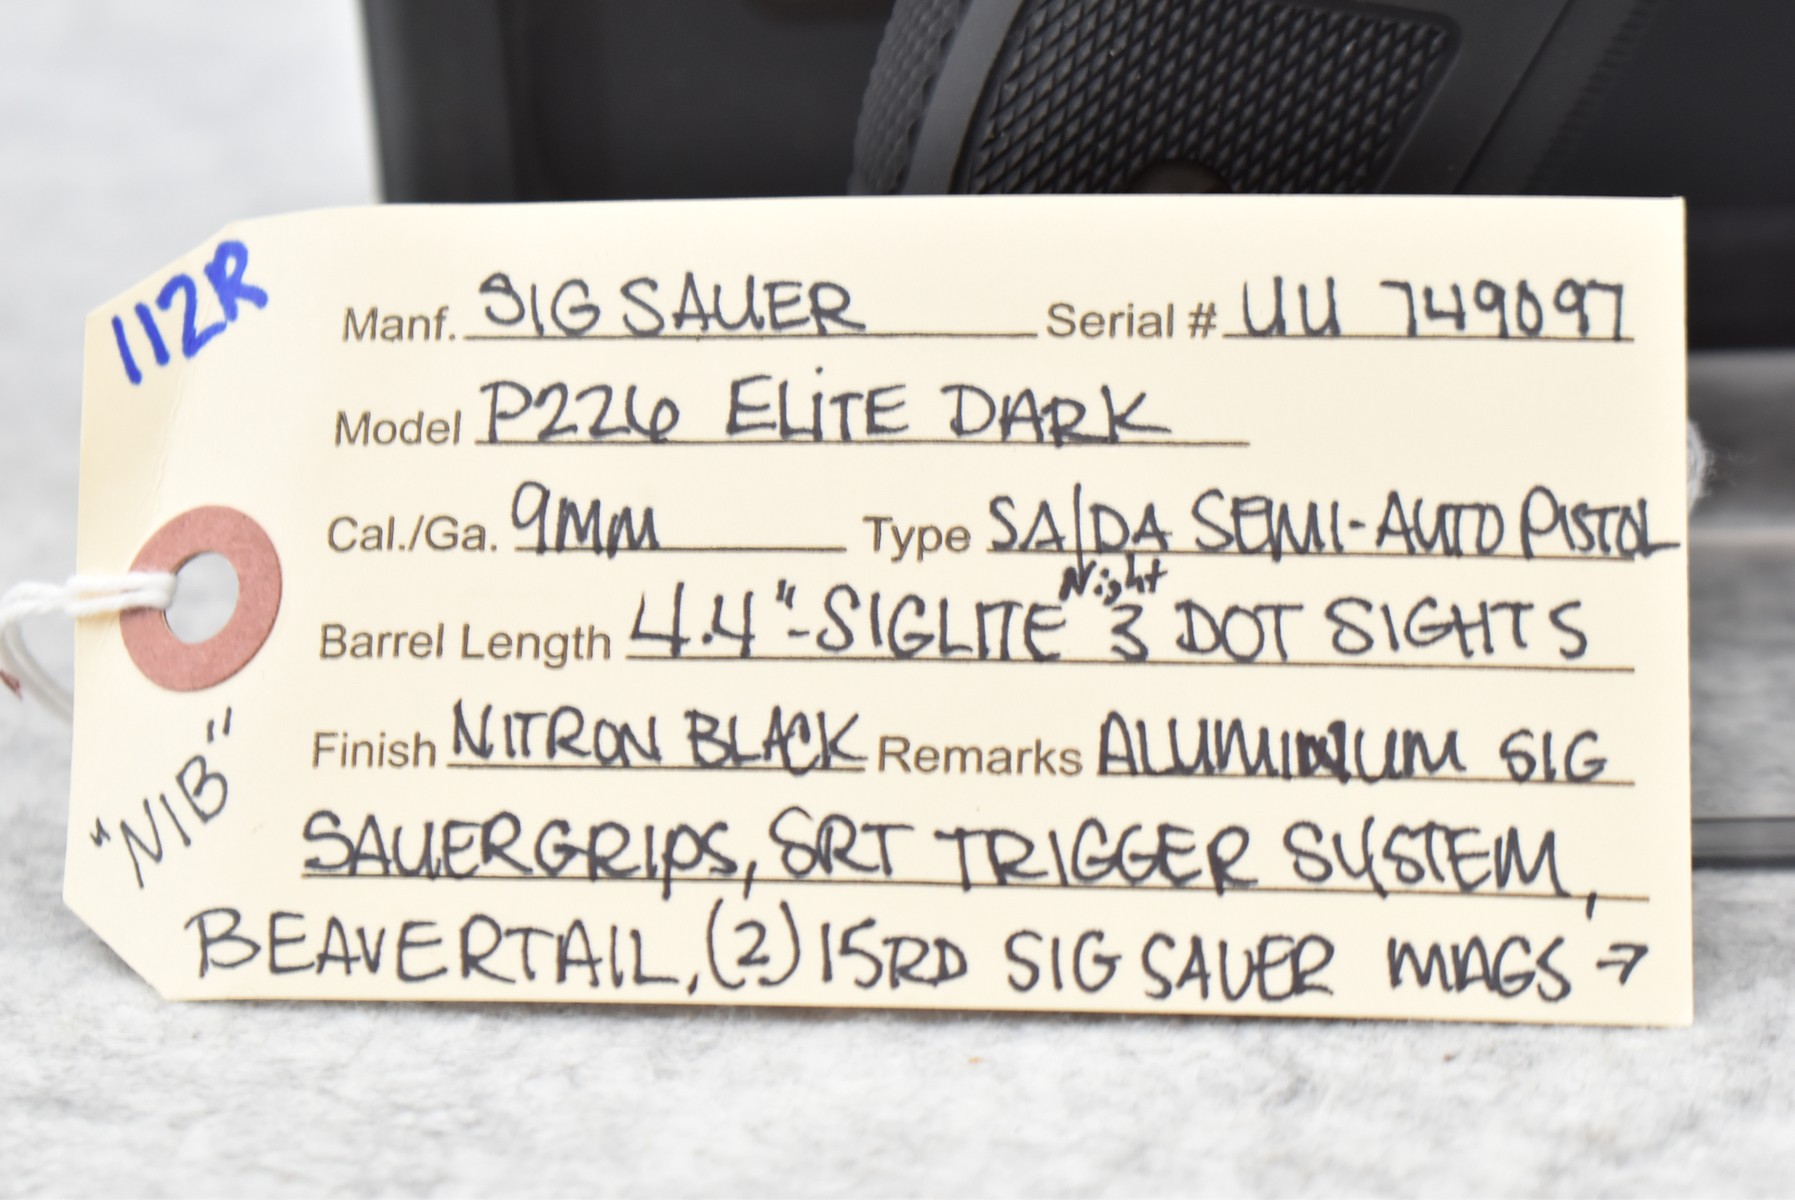 112R
Manf. SIG SAUER Serial # UU 749097
Model P226 ELITE DARK
Cal./Ga. 9MM Type SA/DA SEMI-AUTO PISTOL
Night
Barrel Length 4.4"-SIGLITE 3 DOT SIGHTS
Finish NITRON BLACK Remarks ALUMINUM SIG
"NIB"
SAUER GRIPS, SRT TRIGGER SYSTEM,
BEAVERTAIL, (2) 15RD SIG SAUER MAGS →